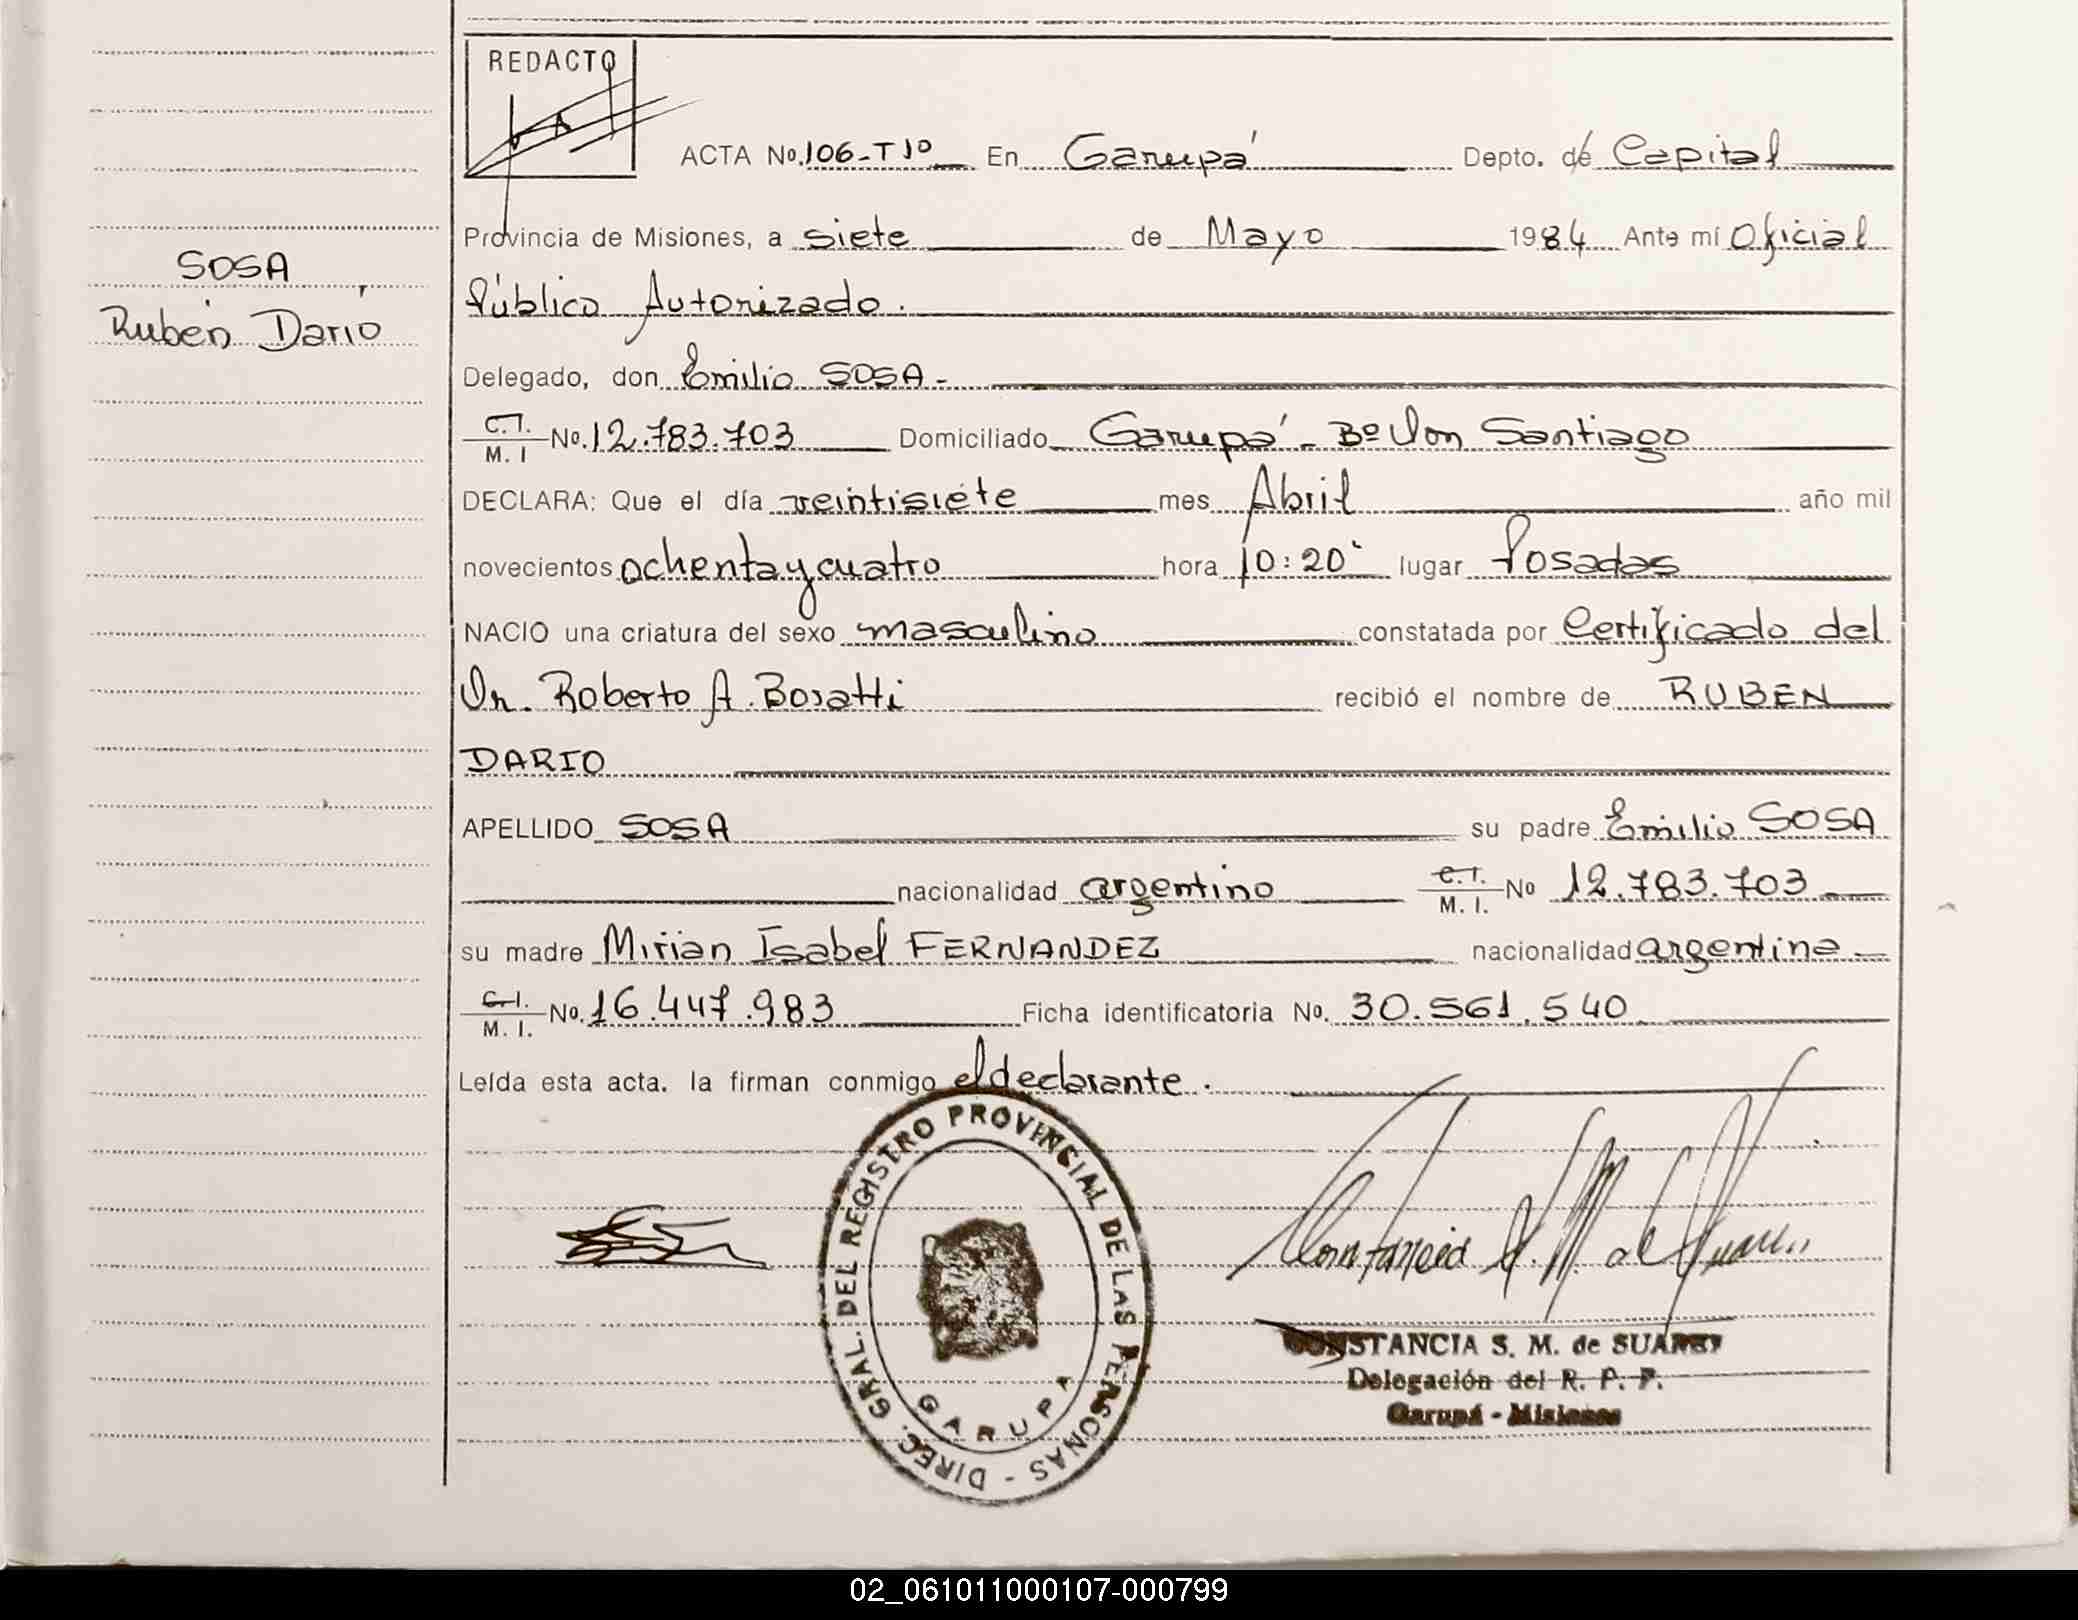 REDACTO
ACTA No. 106-T1º En Garupá Depto. de Capital
Provincia de Misiones, a siete de Mayo 1984 Ante mí Oficial
SOSA
Público Autorizado.
Rubén Darío
Delegado, don Emilio SOSA-
C.I. M. I No. 12.783.703 Domiciliado Garupá - Bº Don Santiago
DECLARA: Que el día veintisiete mes Abril año mil
novecientos ochenta y cuatro hora 10:20 lugar Posadas
NACIO una criatura del sexo masculino constatada por Certificado del
Dr. Roberto A. Bosatti recibió el nombre de RUBEN
DARIO
APELLIDO SOSA su padre Emilio SOSA
nacionalidad argentino C.I. M. I. No 12.783.703
su madre Mirian Isabel FERNANDEZ nacionalidad argentina
C.I. M. I. No. 16.447.983 Ficha identificatoria No. 30.561.540
Leída esta acta. la firman conmigo el declarante.
DIREC. GRAL. DEL REGISTRO PROVINCIAL DE LAS PERSONAS -
GARUPA
Constancia S. M. de Suarez
CONSTANCIA S. M. de SUAREZ
Delegación del R. P. P.
Garupá - Misiones
02_061011000107-000799